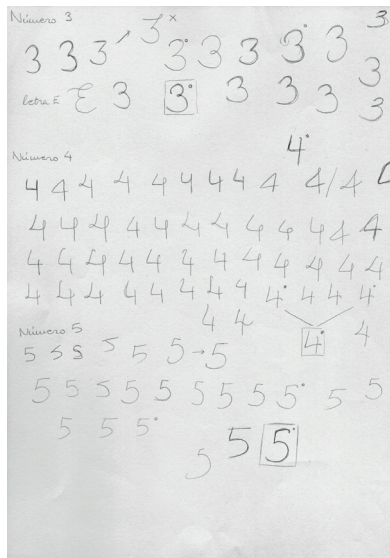 Número 3
3 3 3 3 x 3 3 3 3 3 3
letra E E 3 3 3 3 3 3 3
4
Número 4
4 4 4 4 4 4 4 4 4 4 / 4
4 4 4 4 4 4 4 4 4 4 4 4 4
4 4 4 4 4 4 4 4 4 4 4 4 4
4 4 4 4 4 4 4 4 4 4 4 4
4 4 4 4
Número 5
5 5 5 5 5 5 → 5
5 5 5 5 5 5 5 5 5 5 5 5
5 5 5
5 5 5